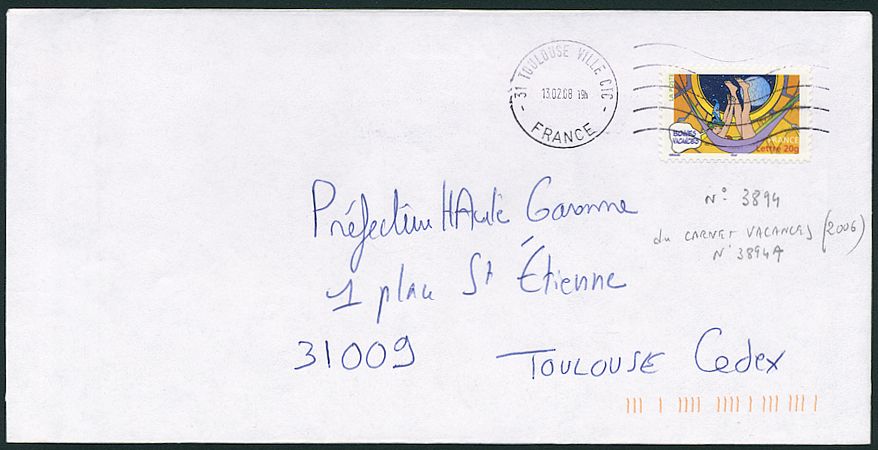 31 TOULOUSE VILLE CTC
13.02.08 19h
FRANCE
LA POSTE
BONNES
VACANCES
FRANCE
Lettre 20g
N° 3894
du CARNET VACANCES (2006)
N° 3894A
Préfecture HAute Garonne
1 place St Étienne
31009 TOULOUSE Cedex